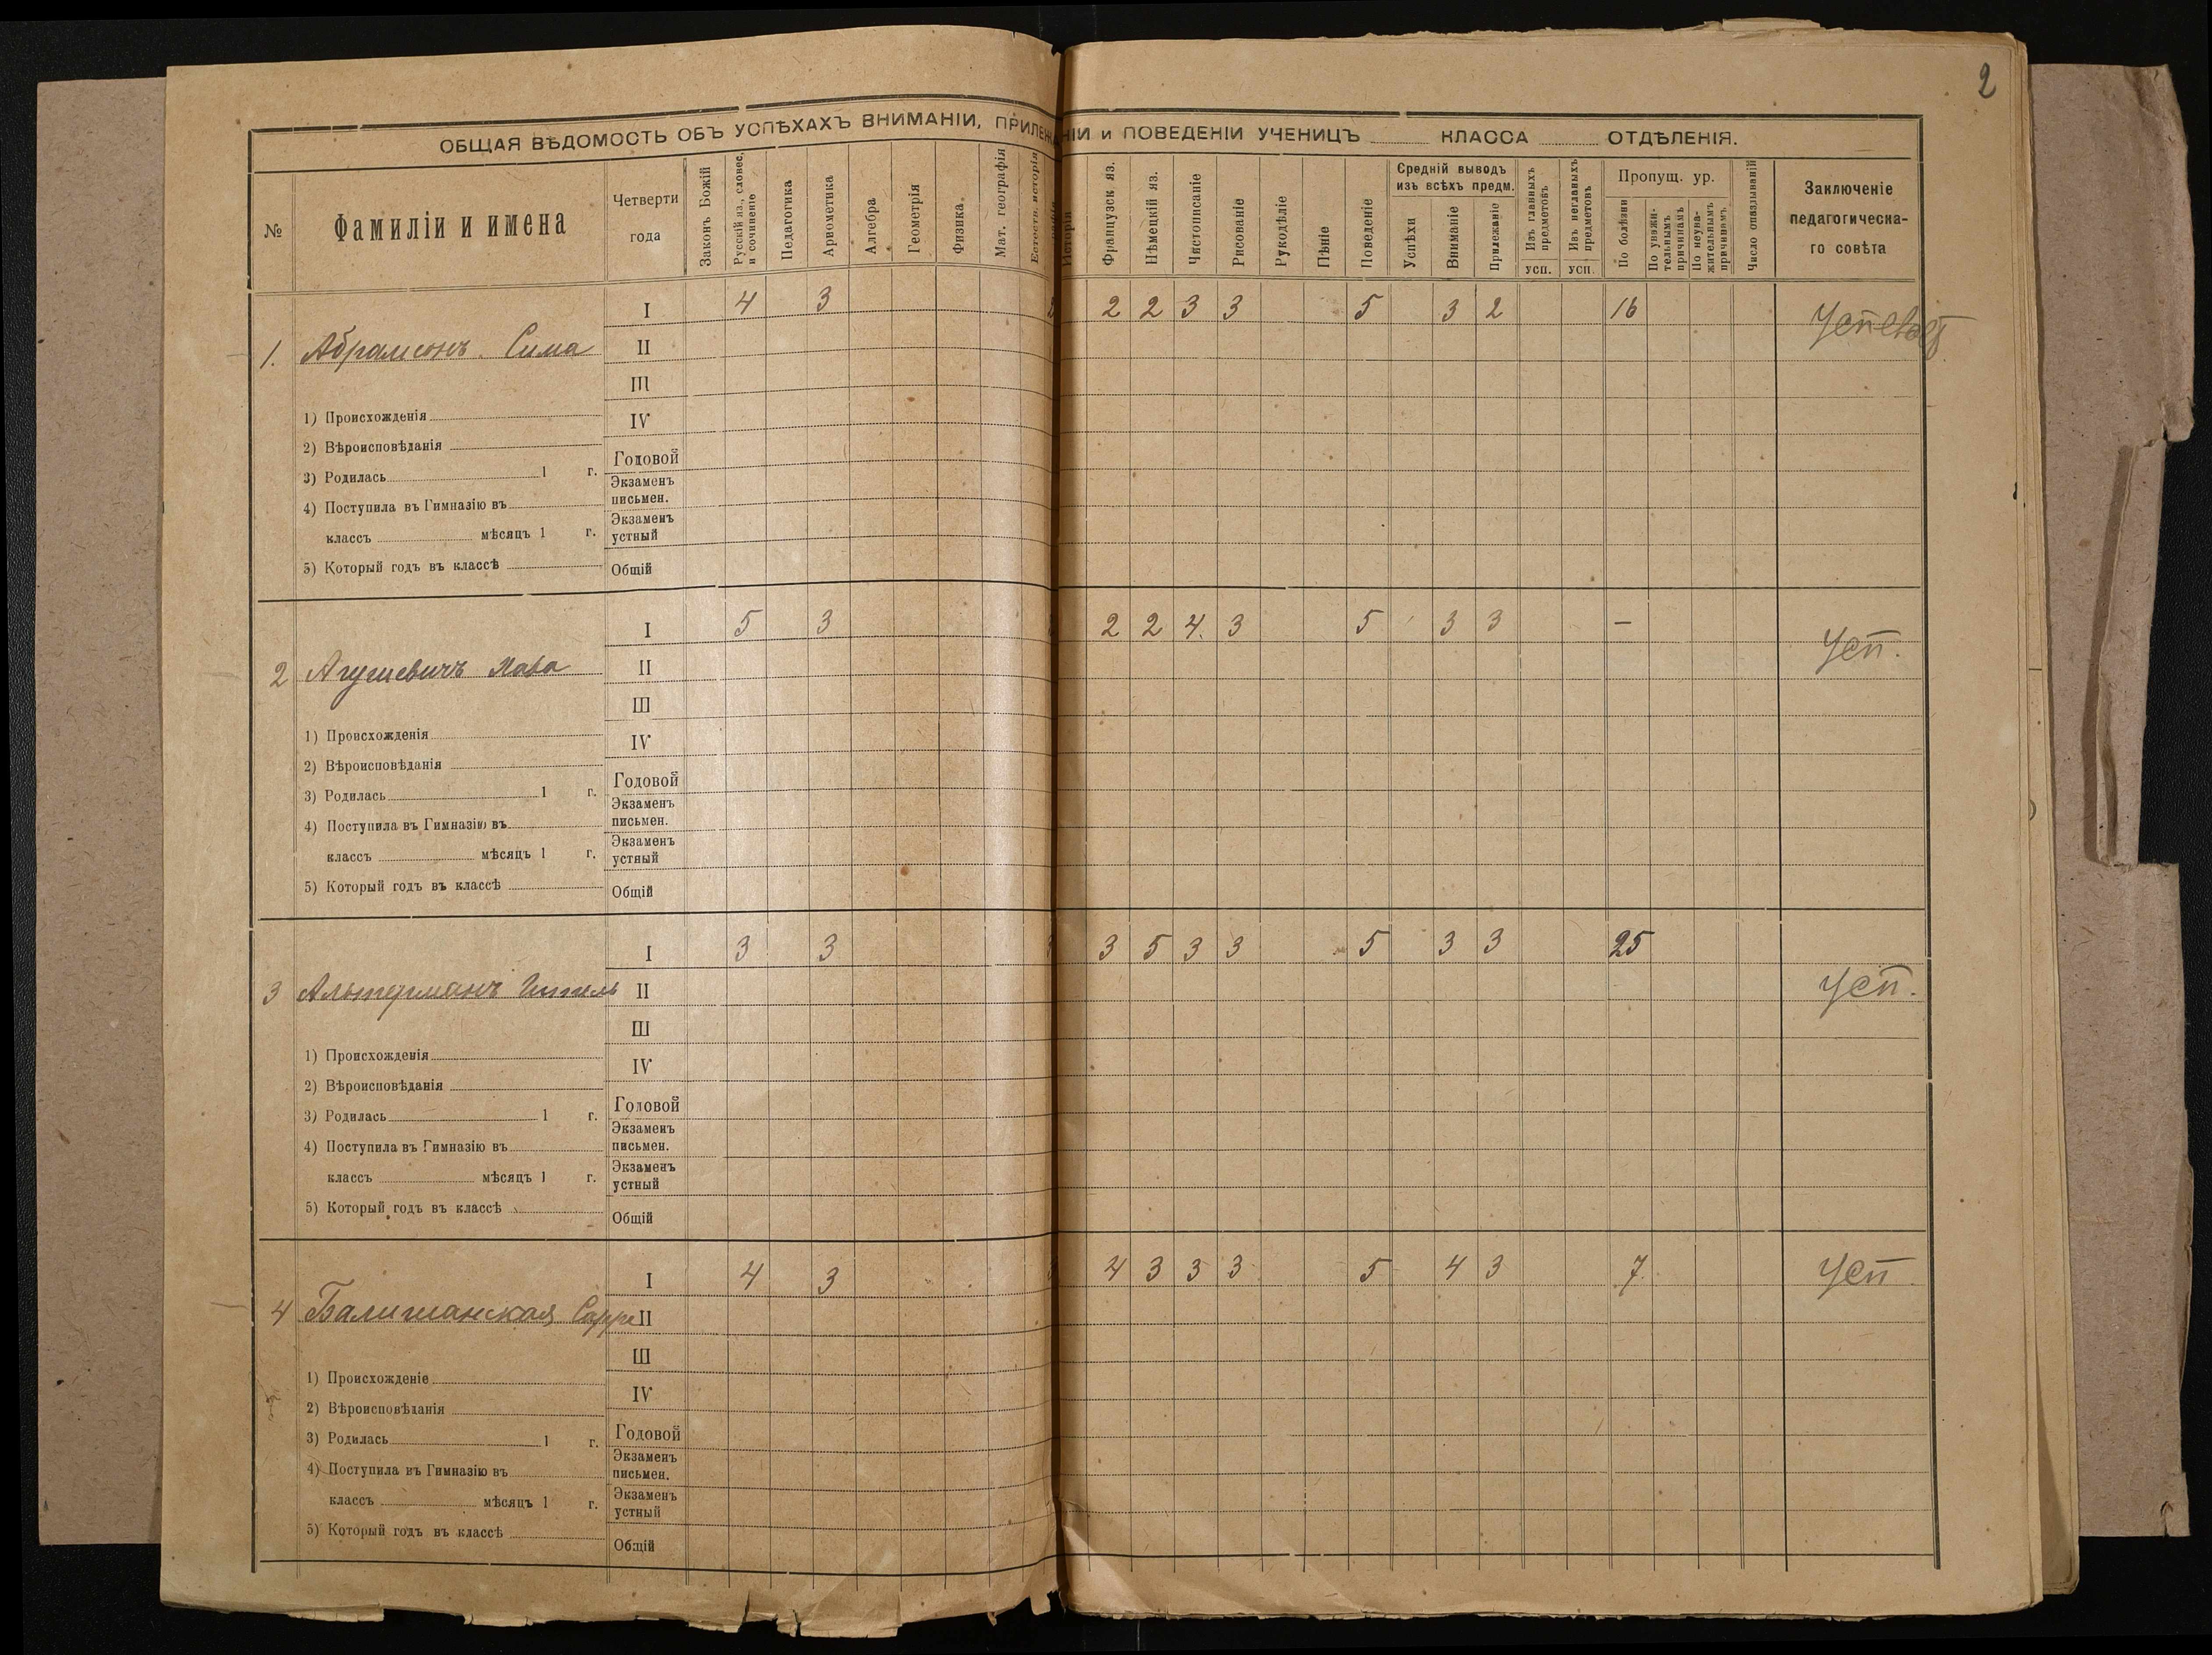 2
ОБЩАЯ ВѢДОМОСТЬ ОБЪ УСПѢХАХЪ ВНИМАНІИ, ПРИЛЕЖАНІИ и ПОВЕДЕНІИ УЧЕНИЦЪ КЛАССА ОТДѢЛЕНІЯ.
№ Фамиліи и имена Четверти года Законъ Божій Русскій яз., словес. и сочиненіе Педагогика Ариѳметика Алгебра Геометрія Физика Мат. географія Естеств. исторія Исторія Французск яз. Нѣмецкій яз. Чистописаніе Рисованіе Рукодѣліе Пѣніе Поведеніе Средній выводъ изъ всѣхъ предм. Успѣхи Вниманіе Прилежаніе Изъ главныхъ предметовъ усп. Изъ неглавныхъ предметовъ усп. Пропущ. ур. По болѣзни По уважительнымъ причинамъ По неуважительнымъ причинамъ Число опаздываній Заключеніе педагогическаго совѣта
I 4 3 2 2 3 3 5 3 2 16 Успеваетъ
1. Абрамсонъ Сима II
III
1) Происхожденія IV
2) Вѣроисповѣданія
3) Родилась 1 г. Годовой
4) Поступила въ Гимназію въ Экзаменъ письмен.
классъ мѣсяцъ 1 г. Экзаменъ устный
5) Который годъ въ классѣ Общій
I 5 3 2 2 4. 3 5 3 3 — Усп.
2 Агушевичъ Хава II
III
1) Происхожденія IV
2) Вѣроисповѣданія
3) Родилась 1 г. Годовой
4) Поступила въ Гимназію въ Экзаменъ письмен.
классъ мѣсяцъ 1 г. Экзаменъ устный
5) Который годъ въ классѣ Общій
I 3 3 3 5 3 3 5 3 3 25 Усп.
3 Альтерманъ II
III
1) Происхожденія IV
2) Вѣроисповѣданія
3) Родилась 1 г. Годовой
4) Поступила въ Гимназію въ Экзаменъ письмен.
классъ мѣсяцъ 1 г. Экзаменъ устный
5) Который годъ въ классѣ Общій
I 4 3 4 3 3 3 5 4 3 7 Усп
4 Балишанская Сарра II
III
1) Происхожденіе IV
2) Вѣроисповѣданія
3) Родилась 1 г. Годовой
4) Поступила въ Гимназію въ Экзаменъ письмен.
классъ мѣсяцъ 1 г. Экзаменъ устный
5) Который годъ въ классѣ Общій